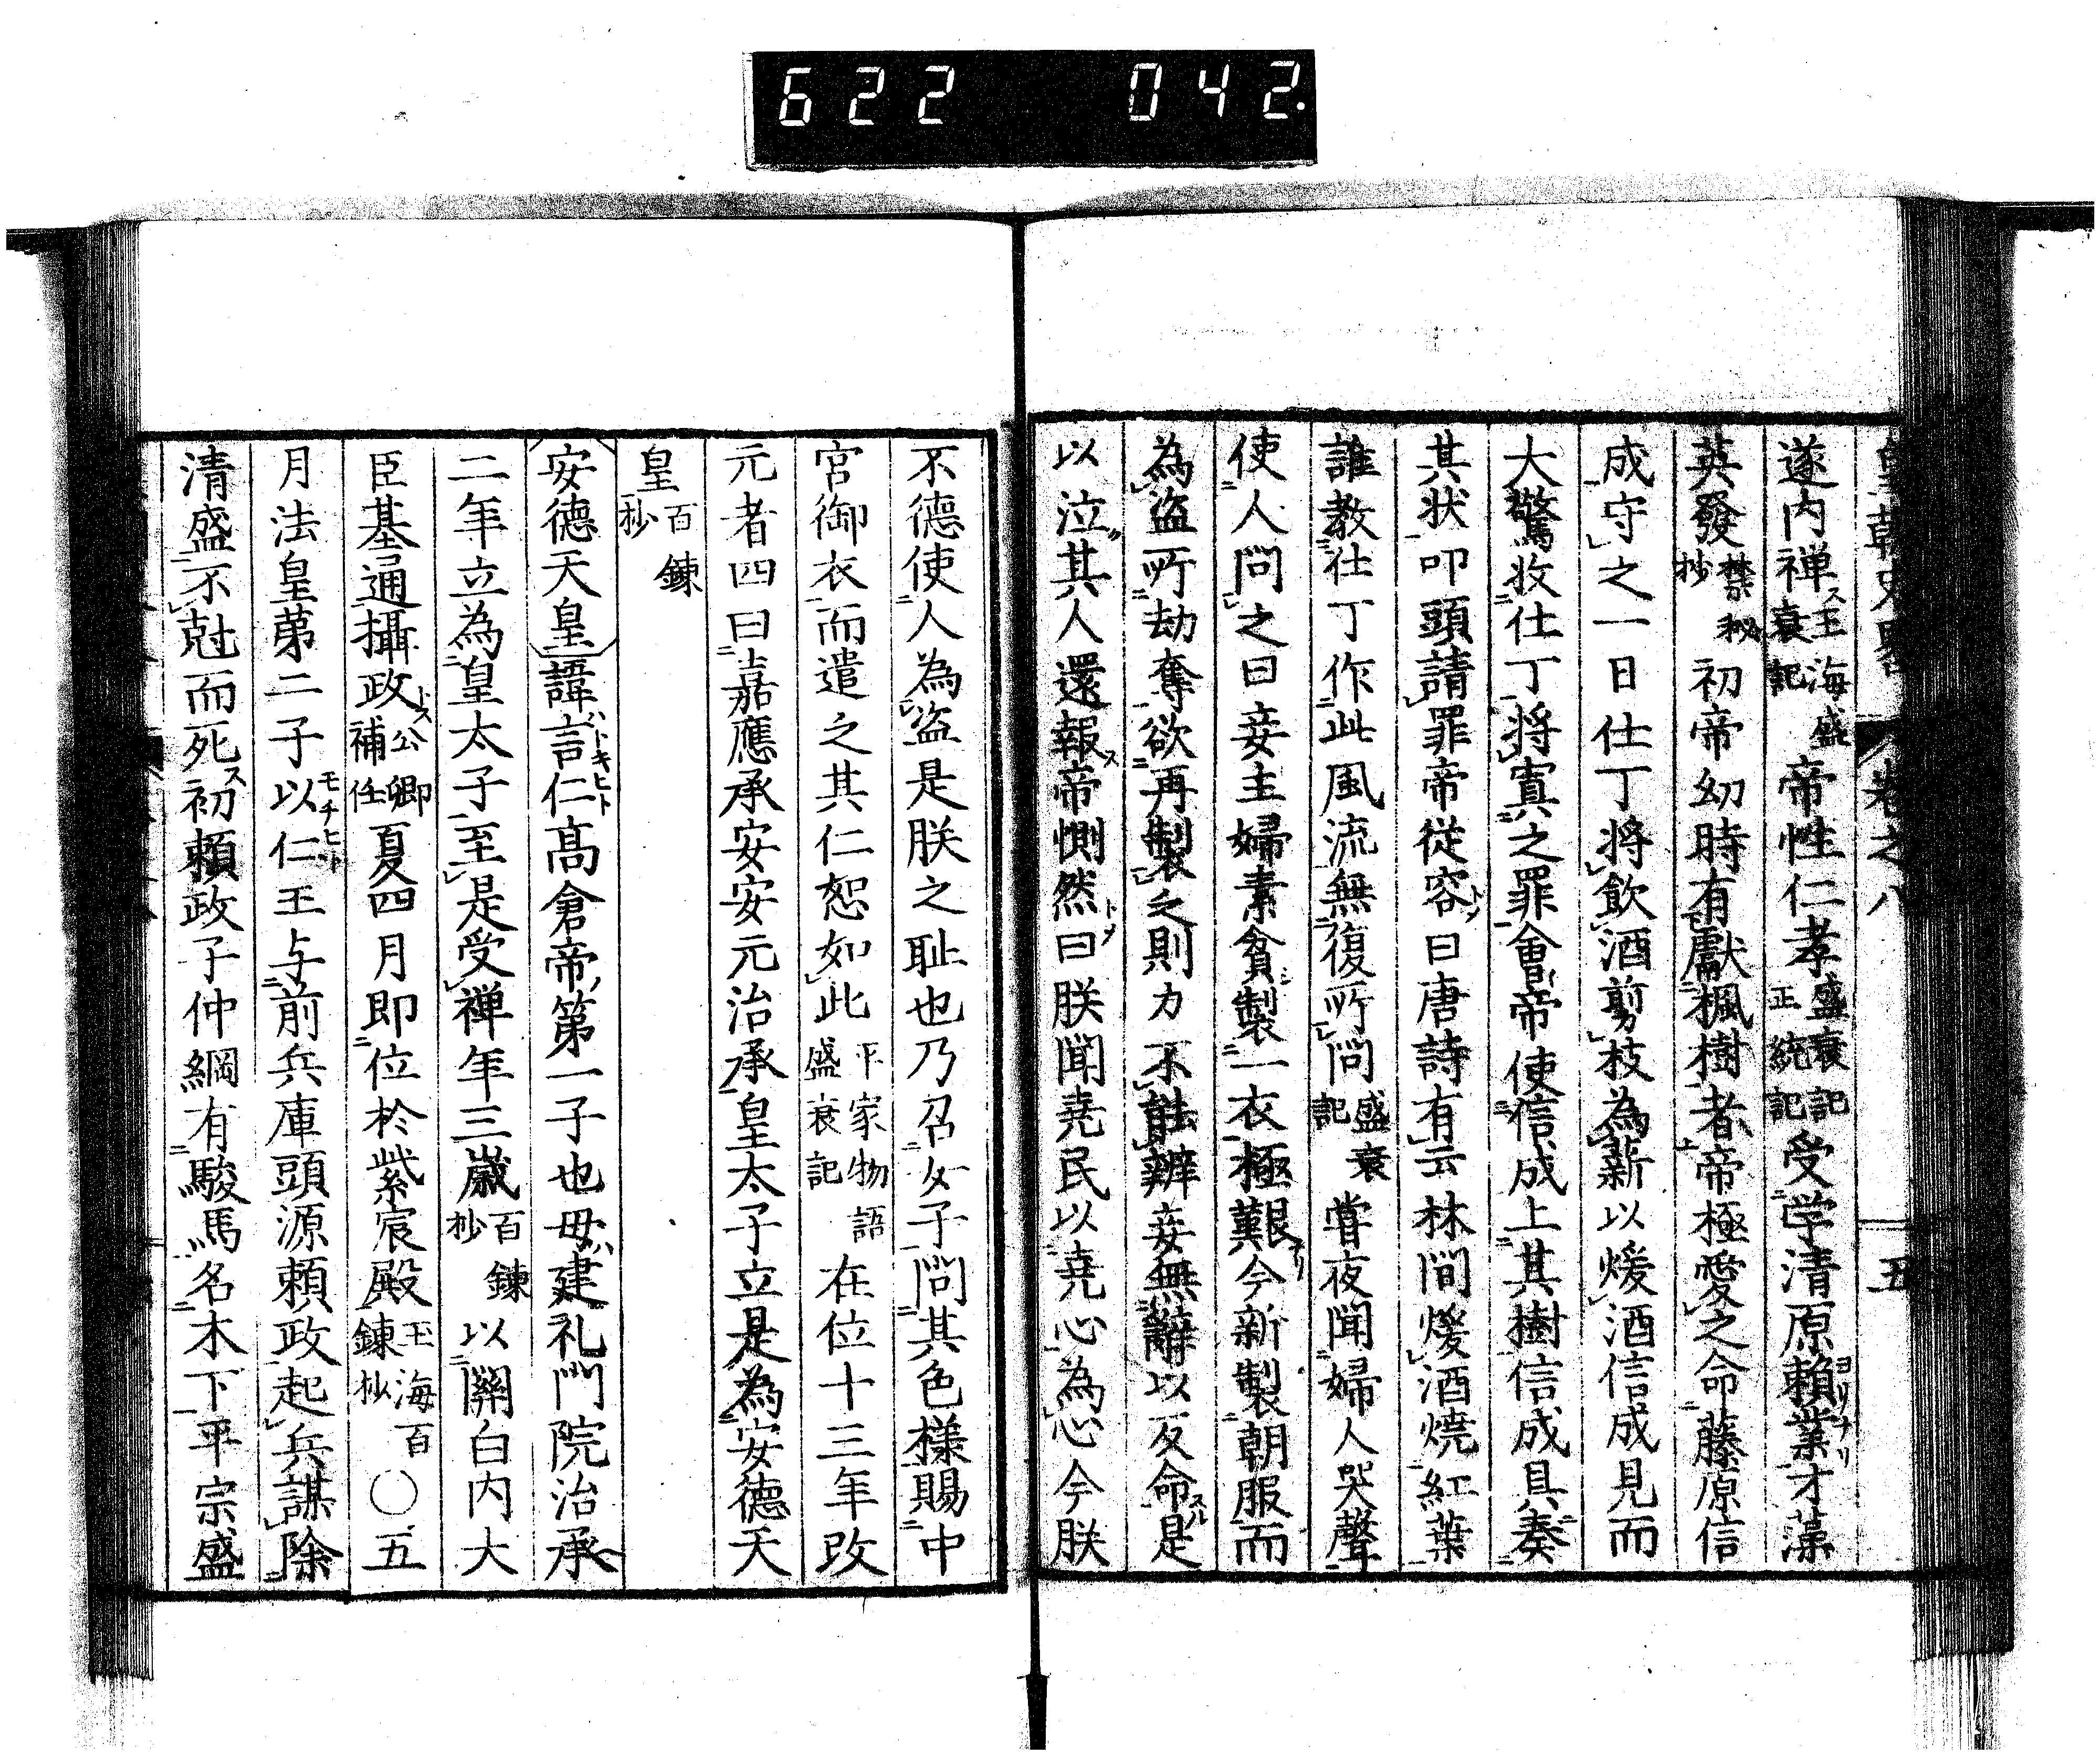 622 042.
皇朝史畧 巻之八 五
遂内禅ス玉海盛衰記帝性仁孝盛衰記正統記受学清原頼業ヨリナリ才藻
英發禁秘抄初帝幼時有献楓樹者帝極愛之命藤原信
成守之一日仕丁将飲酒剪枝為薪以煖酒信成見而
大驚收仕丁将寘之罪會帝使信成上其樹信成具奏
其状叩頭請罪帝従容トノ曰唐詩有云林間煖酒焼紅葉
誰教仕丁作此風流無復所問盛衰記嘗夜聞婦人哭聲
使人問之曰妾主婦素貧製一衣極艱今新製朝服而
為盗所劫奪欲再製之則力不能辦妾無辭以反命スル是
以泣其人還報ス帝惻然トノ曰朕聞堯民以堯心為心今朕
不德使人為盗是朕之耻也乃召女子問其色様賜中
宮御衣而遣之其仁恕如此平家物語盛衰記在位十三年改
元者四曰嘉應承安安元治承皇太子立是為安德天
皇百錬抄
安德天皇諱言仁トキヒト高倉帝第一子也母建礼門院治承
二年立為皇太子至是受禅年三歳百錬抄以關白内大
臣基通攝政トス公卿補任夏四月即位於紫宸殿玉海百錬抄〇五
月法皇第二子以仁モチヒト王与前兵庫頭源頼政起兵謀除
清盛不尅而死ス初頼政子仲綱有駿馬名木下平宗盛